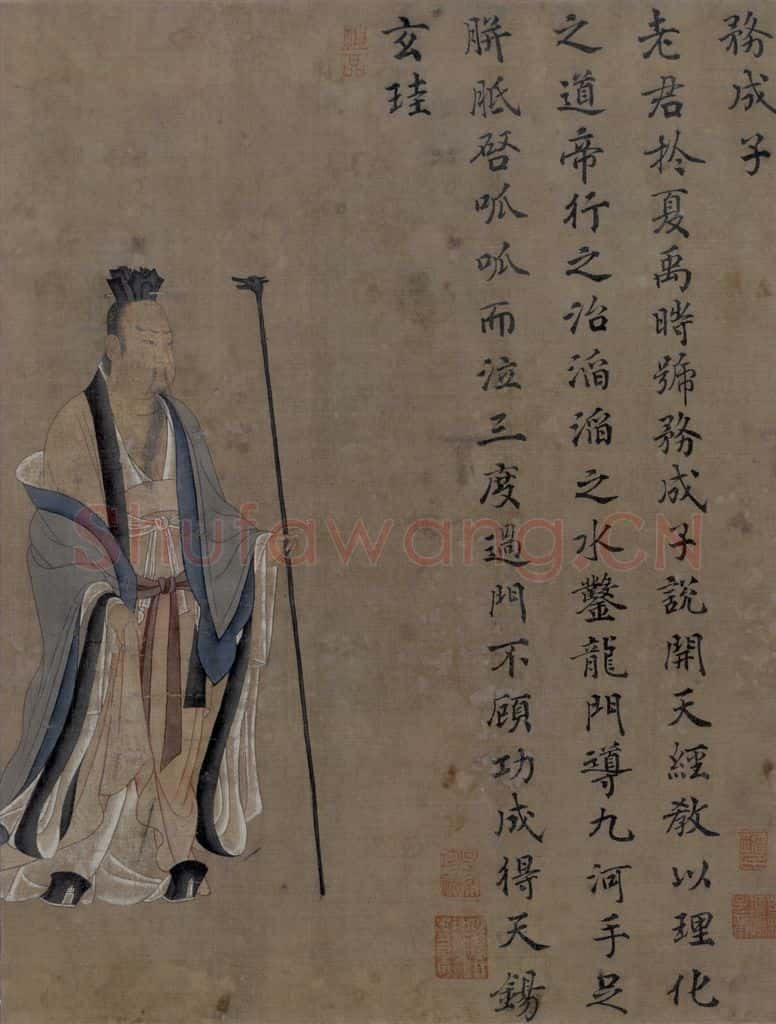 務成子
老君扵夏禹時號務成子說開天經教以理化
之道帝行之治滔滔之水鑿龍門導九河手足
胼胝啓呱呱而泣三度過門不顧功成得天錫
玄珪
Shufawang.CN